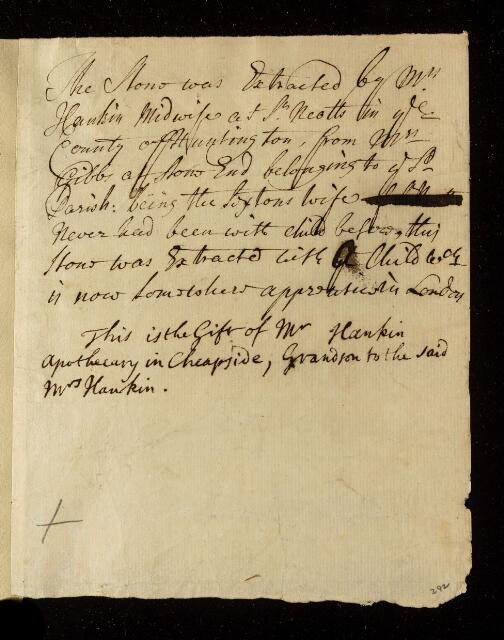 The Stone was Extracted by Mrs
Hankin Midwife att St Neotts in ye
County off Huntington, from Mrs
Gibb att Stone End belonging to ye Sd
Parish: being the Sextons wife
Never had been with child before, this
Stone was Extracted with a Child wch
is now somewhere apprentice in London
This is the Gift of Mr Hankin
Apothecary in Cheapside, Grandson to the said
Mrs Hankin.
292